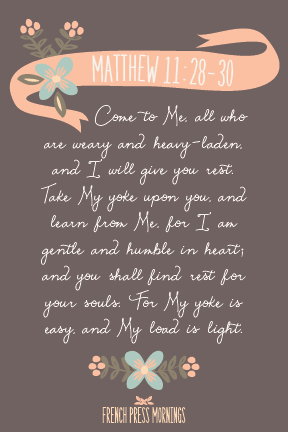 MATTHEW 11:28-30
Come to Me, all who
are weary and heavy-laden,
and I will give you rest.
Take My yoke upon you, and
learn from Me, for I am
gentle and humble in heart;
and you shall find rest for
your souls. For My yoke is
easy, and My load is light.
FRENCH PRESS MORNINGS